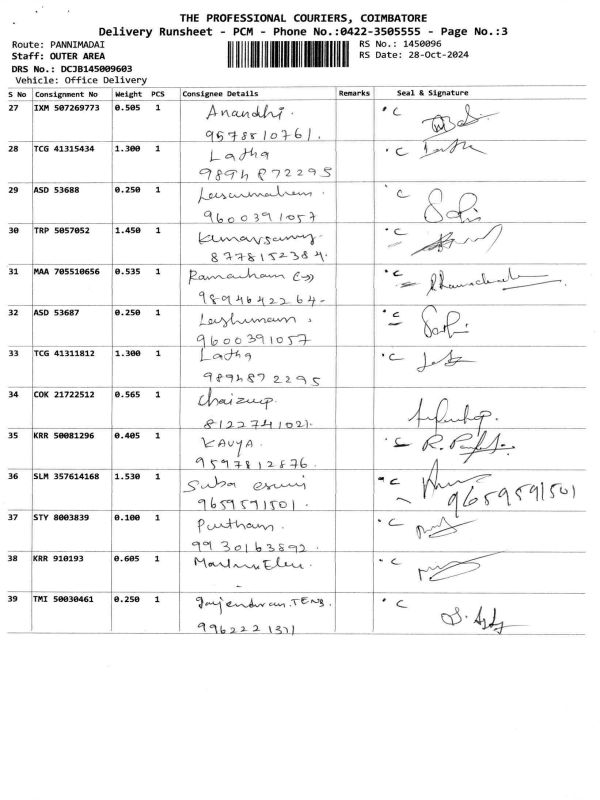 THE PROFESSIONAL COURIERS, COIMBATORE
Delivery Runsheet - PCM - Phone No.:0422-3505555 - Page No.:3
Route: PANNIMADAI
RS No.: 1450096
Staff: OUTER AREA
RS Date: 28-Oct-2024
DRS No.: DCJB145009603
Vehicle: Office Delivery
S No Consignment No Weight PCS Consignee Details Remarks Seal & Signature
27 IXM 507269773 0.505 1 Anandhi. °C
9578810761.
28 TCG 41315434 1.300 1 Latha °C Latha
9894872295
29 ASD 53688 0.250 1 °C
9600391057
30 TRP 5057052 1.450 1 Kumarsamy °C
8778152384.
31 MAA 705510656 0.535 1 °C
9894642264-
32 ASD 53687 0.250 1 °C
9600391057
33 TCG 41311812 1.300 1 Latha °C
9894872295
34 COK 21722512 0.565 1
8122741021.
35 KRR 50081296 0.405 1 KAVYA.
9597812876.
36 SLM 357614168 1.530 1 Suba °C
9659591501. 9659591501
37 STY 8003839 0.100 1 °C
9930163892.
38 KRR 910193 0.605 1 °C
39 TMI 50030461 0.250 1 °C
9962221371